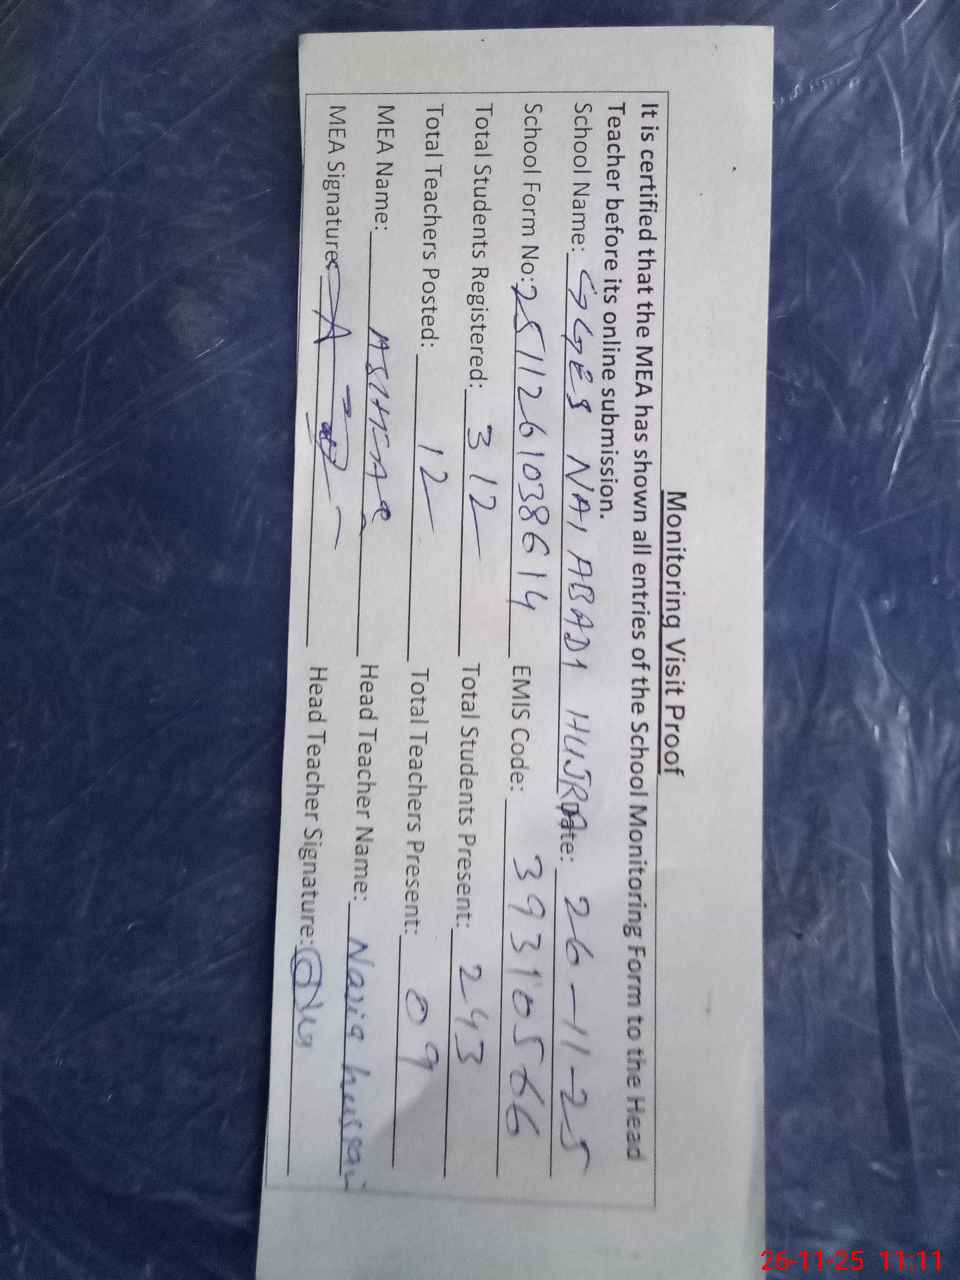 Monitoring Visit Proof
It is certified that the MEA has shown all entries of the School Monitoring Form to the Head
Teacher before its online submission.
School Name: GGES NAI ABADI HUJRA Date: 26-11-25
School Form No: 2511261038614 EMIS Code: 39310566
Total Students Registered: 312 Total Students Present: 243
Total Teachers Posted: 12 Total Teachers Present: 09
MEA Name: Head Teacher Name: Nazia hussain
MEA Signature: Head Teacher Signature:
26-11-25 11:11